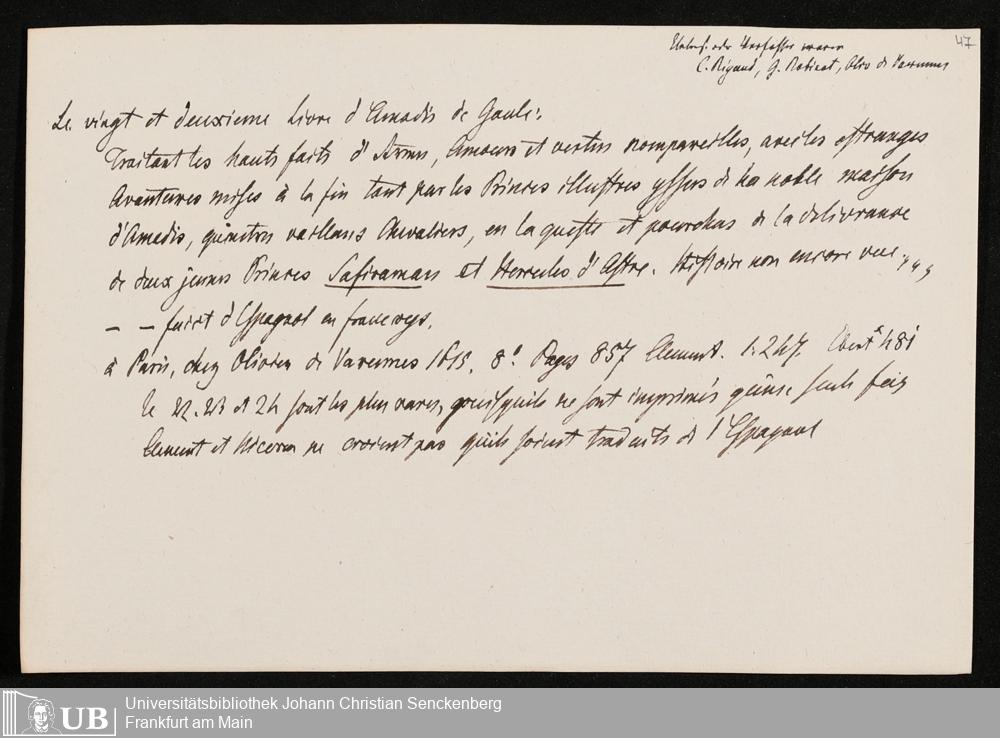 47
Uebers. oder Verfasser waren
C. Rigaud, G. Robinot, Oliv de Varennes
Le vingt et deuxieme Livre d'Amadis de Gaule:
Traitant les hauts faits d'Armes, Amours et vertus nompareilles, avec les estranges
Avantures mises à la fin tant par les Princes illustres yssus de la noble maison
d'Amadis, qu'autres vaillans Chevaliers, en la queste et pourchas de la delivrance
de deux jeunes Princes Safiraman et Hercules d'Astre. Histoire non encore vue,,,
– – faict d'Espagnol en francoys.
à Paris, chez Olivier de Varennes 1615. 8° Pages 857 Clement. 1.247. Ebert 481
le 22. 23 et 24 sont les plus rares, puisqu'ils ne sont imprimés qu'une seule fois
Clement et Niceron ne croient pas qu'ils soient traduits de l'Espagnol
UB
Universitätsbibliothek Johann Christian Senckenberg
Frankfurt am Main